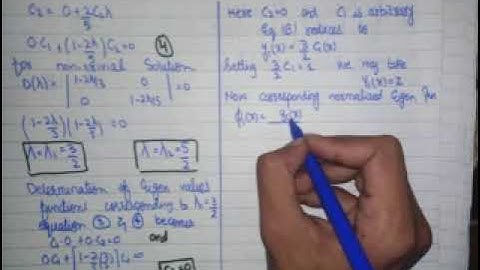 C₂ = 0 + 2C₂λ/5
0.C₁ + (1-2λ/5)C₂ = 0 ④
for non-trivial Solution
D(λ) = | 1-2λ/3 0 |
| 0 1-2λ/5 | = 0
(1-2λ/3)(1-2λ/5) = 0
λ = λ₁ = 3/2 λ = λ₂ = 5/2
Determination of Eigen values
functions corresponding to λ = 3/2
equation ③ & ④ becomes
C₁.0 + 0.C₂ = 0 and
Here C₂=0 and C₁ is arbitrarily
Eq (8) reduces to
Setting 3/2 C₁ = 1 we may take
Now corresponding normalized Eigen